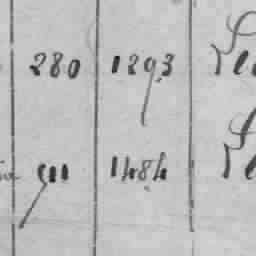 280 1293
911 1484